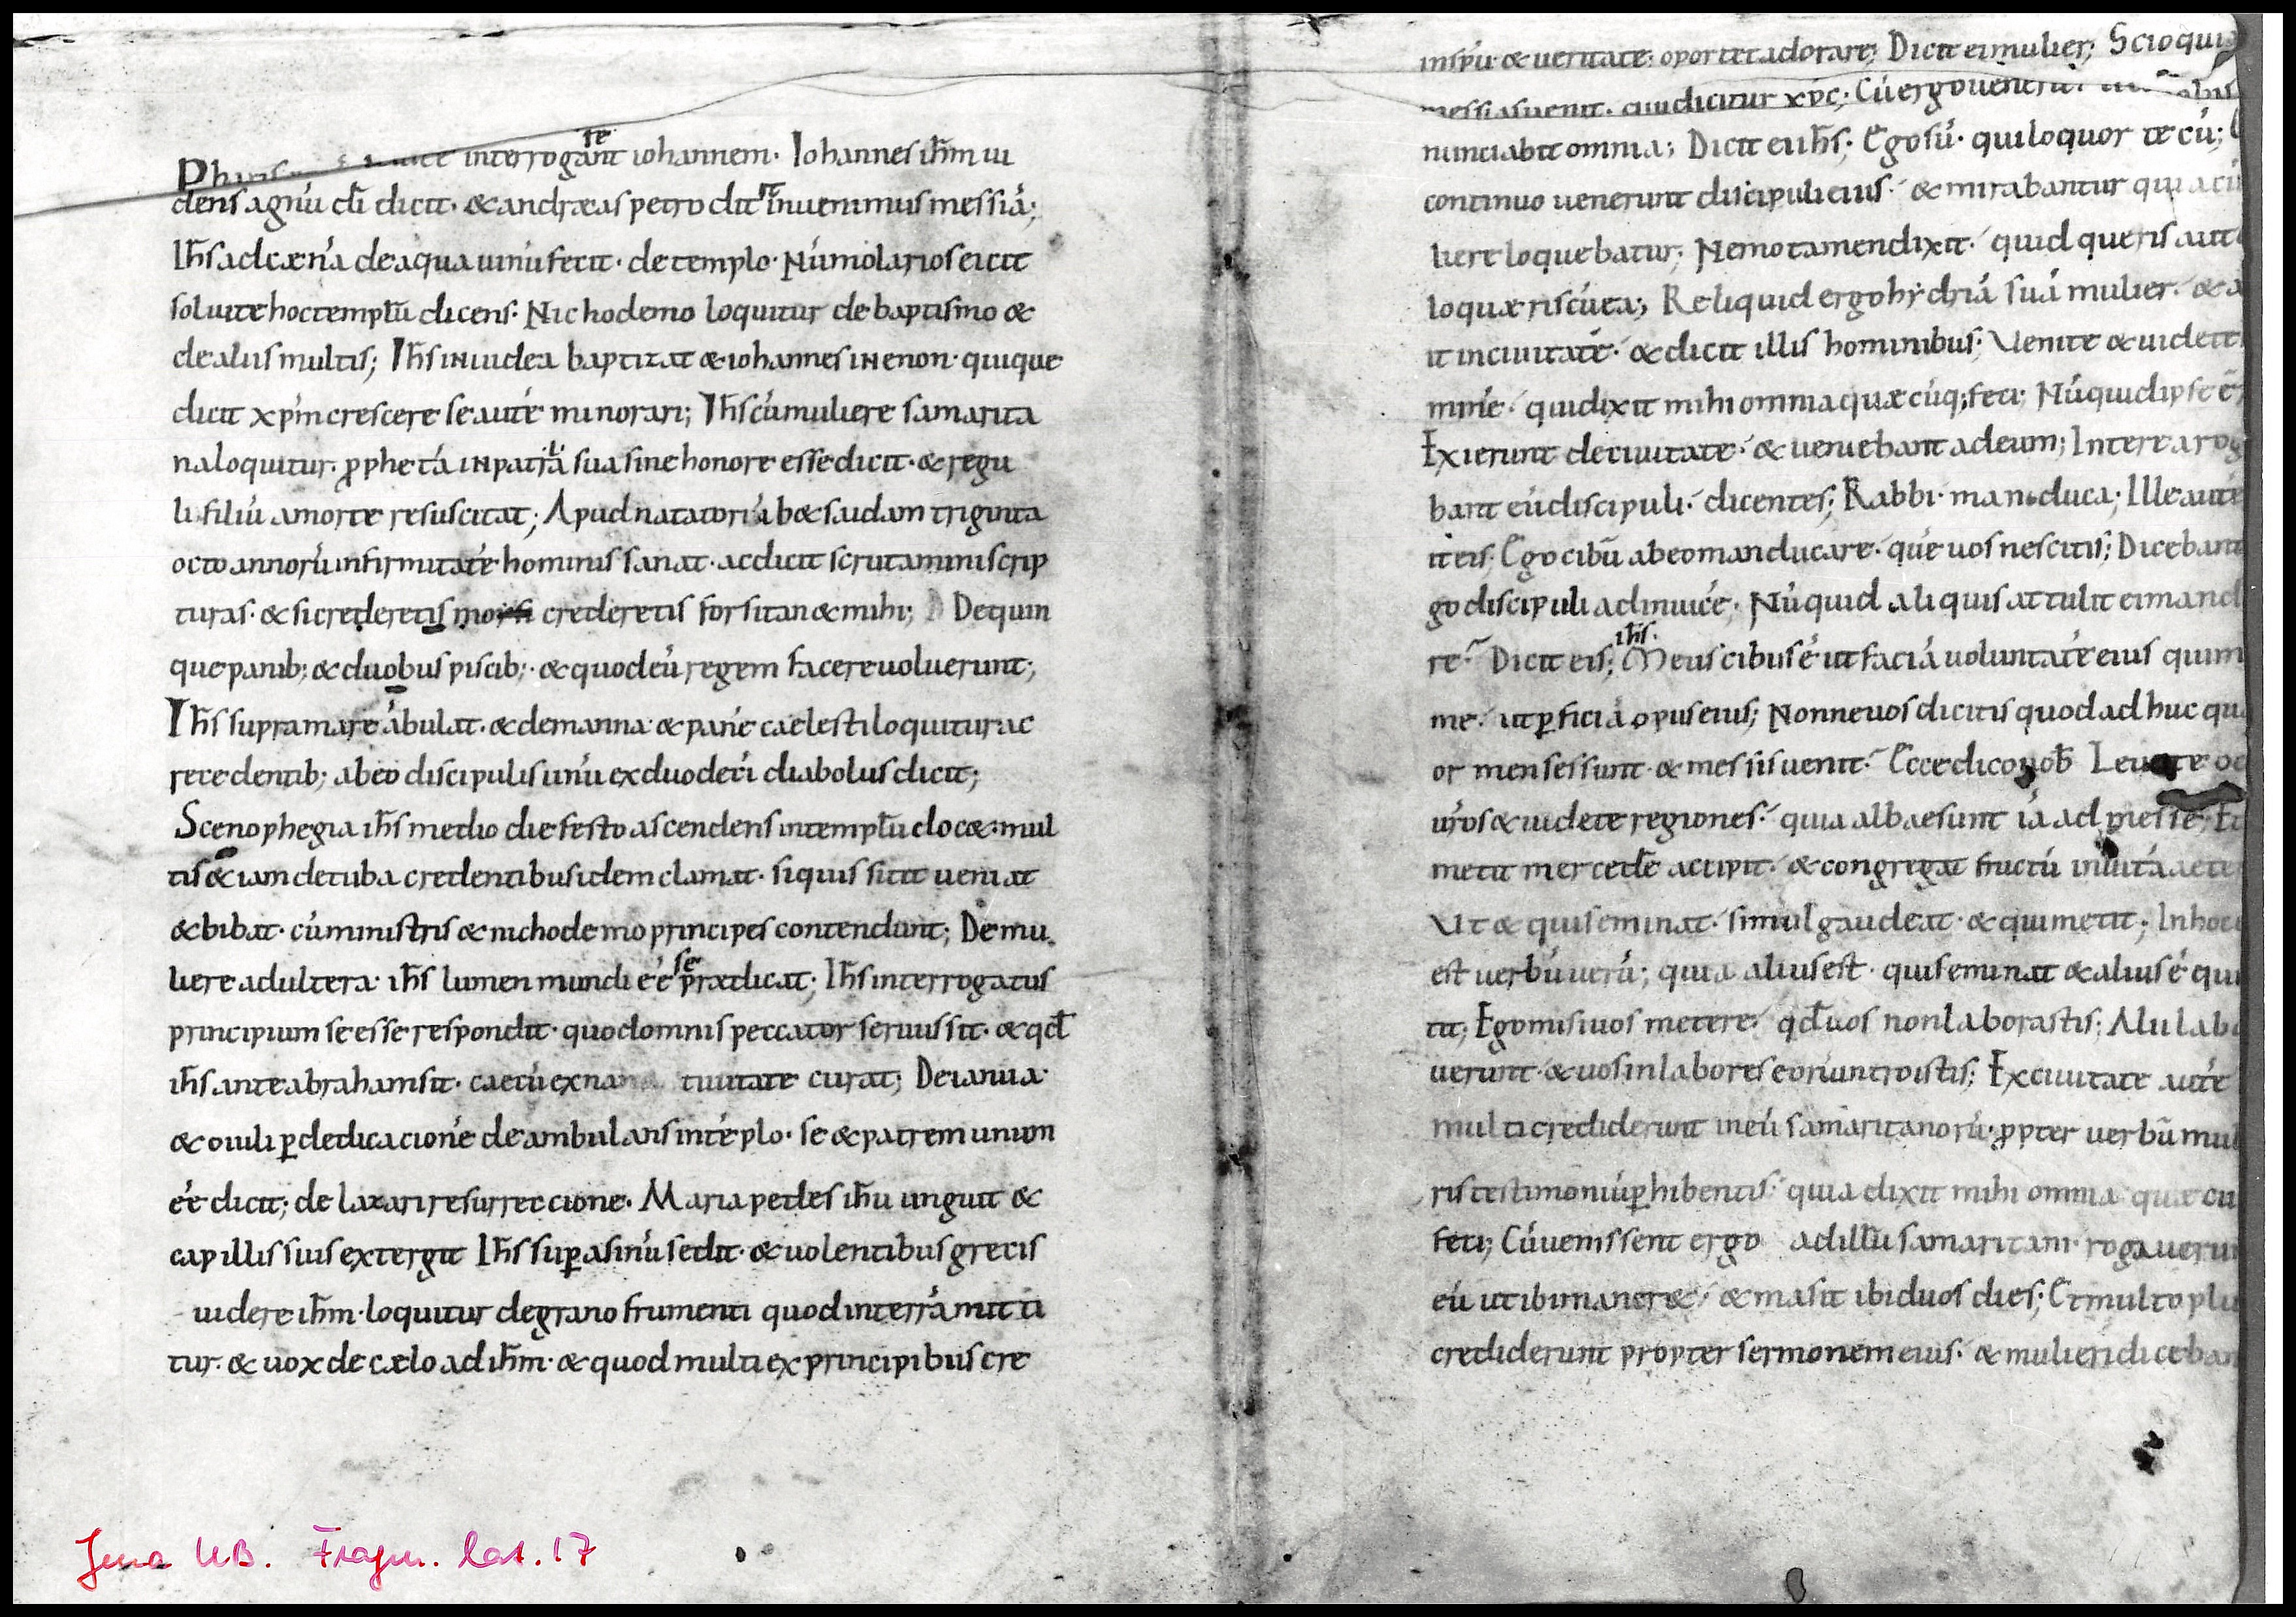 interrogant iohannem. Iohannes ihm ui
te
dens agnú dī dicit. & andræas petro dic̄ inuenimus messiā;
Ihs ad cœná de aqua uinú fecit. de templo. Númolarios eicit
soluite hoc templū dicens. Nichodemo loquitur de baptismo &
de aliis multis; Ihs in iudea baptizat & iohannes in enon. quique
dicit xpm crescere se auté minorari; Ihs cú muliere samarita
na loquitur. ꝓphetá in patriá sua sine honore esse dicit. & regu
li filiú a morte resuscitat; Apud natatoriá b&saidam triginta
octo annorú infirmitaté hominis sanat. ac dicit scrutamini scrip
turas. & si crederetis mosi crederetis forsitan & mihi; De quin
que panib; & duobus piscib;. & quod eú regem facere uoluerunt;
Ihs supra mare ábulat. & de manna & pané caelesti loquitur ac
recedentib; ab eo discipulis unú ex duodeci diabolus dicit;
Scenophegia ihs medio die festo ascendens in templū doc&. mul
tis & iam de tuba credentibus idem clamat. si quis sitit ueniat
& bibat. cú ministris & nichodemo principes contendunt; De mu
liere adultera. ihs lumen mundi eé se prædicat; Ihs interrogatus
principium se esse respondit. quod omnis peccator seruus sit. & qd̄
ihs ante abraham sit. caecú ex na tiuitate curat; De ianua.
& ouili ꝑ dedicacioné deambulans in téplo. se & patrem unum
eé dicit; de lazari resurreccione. Maria pedes ihu unguit &
capillis suis extergit Ihs suꝑ asinú sedit. & uolentibus grecis
uidere ihm. loquitur de grano frumenti quod in terrá mitti
tur. & uox de cælo ad ihm. & quod multi ex principibus cre
in spu & ueritate. oportet adorare; Dicit ei mulier; Scio quia
messias uenit. qui dicitur xpc; Cú ergo uenerit
nunciabit omnia; Dicit ei ihs. Ego sú. qui loquor tecú;
continuo uenerunt discipuli eius. & mirabantur qui a cú
liere loquebatur; Nemo tamen dixit. quid queris aut
loquæris cú ea; Reliquid ergo hydriá suá mulier. & a
it in ciuitaté. & dicit illis hominibus; Uenite & uidete
minē. qui dixit mihi omnia quæcúq; feci; Núquid ipse ē
Exierunt de ciuitate. & ueniebant ad eum; Interea rog
bant eú discipuli. dicentes; Rabbi. manduca; Ille auté
it eis. Ego cibū abeo manducare. qué uos nescitis; Dicebant
go discipuli ad inuicé. Núquid aliquis attulit ei mand
re. Dicit eis; ihs. Meus cibus é ut faciá uoluntaté eius qui m
me. ut ꝑficiá opus eius; Nonne uos dicitis quod adhuc qu
or menses sunt & messis uenit. Ecce dico uob̄ Leuate oc
uros & uidete regiones. quia albae sunt iá ad messé; Et
metit mercedē accipit. & congregat fructú in uitá aete
Ut & qui seminat. simul gaudeat. & qui metit; In hoc e
est uerbú uerú; quia alius est. qui seminat & alius é qui
tit; Ego misi uos metere. qd̄ uos non laborastis; Alii labo
uerunt. & uos in labores eorú introistis; Ex ciuitate auté
multi crediderunt in eú samaritanorú. ꝓpter uerbū mul
ris testimoniú ꝑhibentis. quia dixit mihi omnia quæcu
feci; Cú uenissent ergo ad illū samaritani. rogauerun
eú ut ibi maner&. & masit ibi duos dies; Et multo plu
crediderunt propter sermonem eius. & mulieri diceban
Jena UB. Fragm. lat. 17